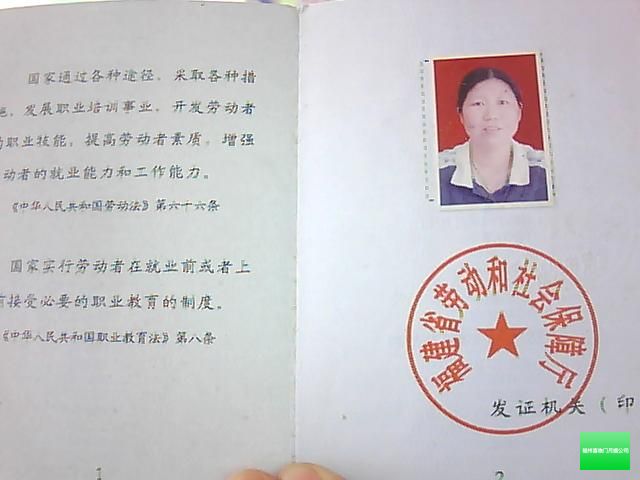 国家通过各种途径，采取各种措
施，发展职业培训事业，开发劳动者
的职业技能，提高劳动者素质，增强
动者的就业能力和工作能力。
《中华人民共和国劳动法》第六十六条
国家实行劳动者在就业前或者上
前接受必要的职业教育的制度。
《中华人民共和国职业教育法》第八条
1
福建省劳动和社会保障厅
发证机关（印
2